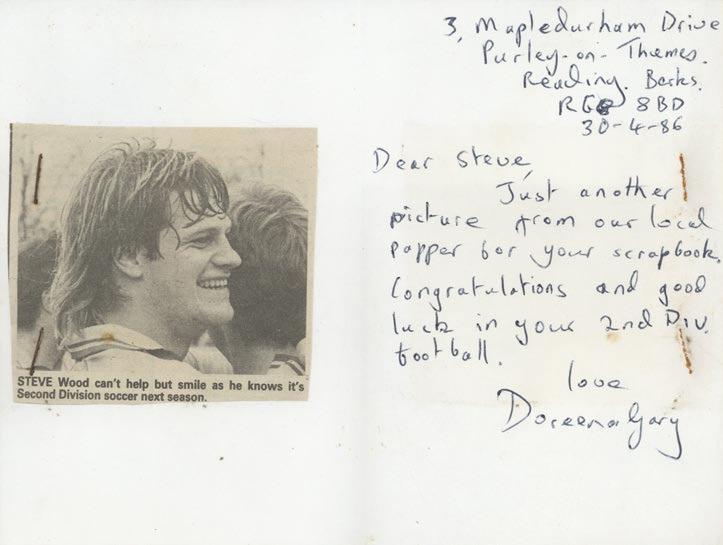 3, Mapledurham Drive
Purley-on-Thames.
Reading. Berks.
RG8 8BD
30-4-86
Dear Steve,
Just another
picture from our local
papper for your scrapbook.
Congratulations and good
luck in your 2nd Div.
football.
love
Doreen & Gary
STEVE Wood can't help but smile as he knows it's
Second Division soccer next season.